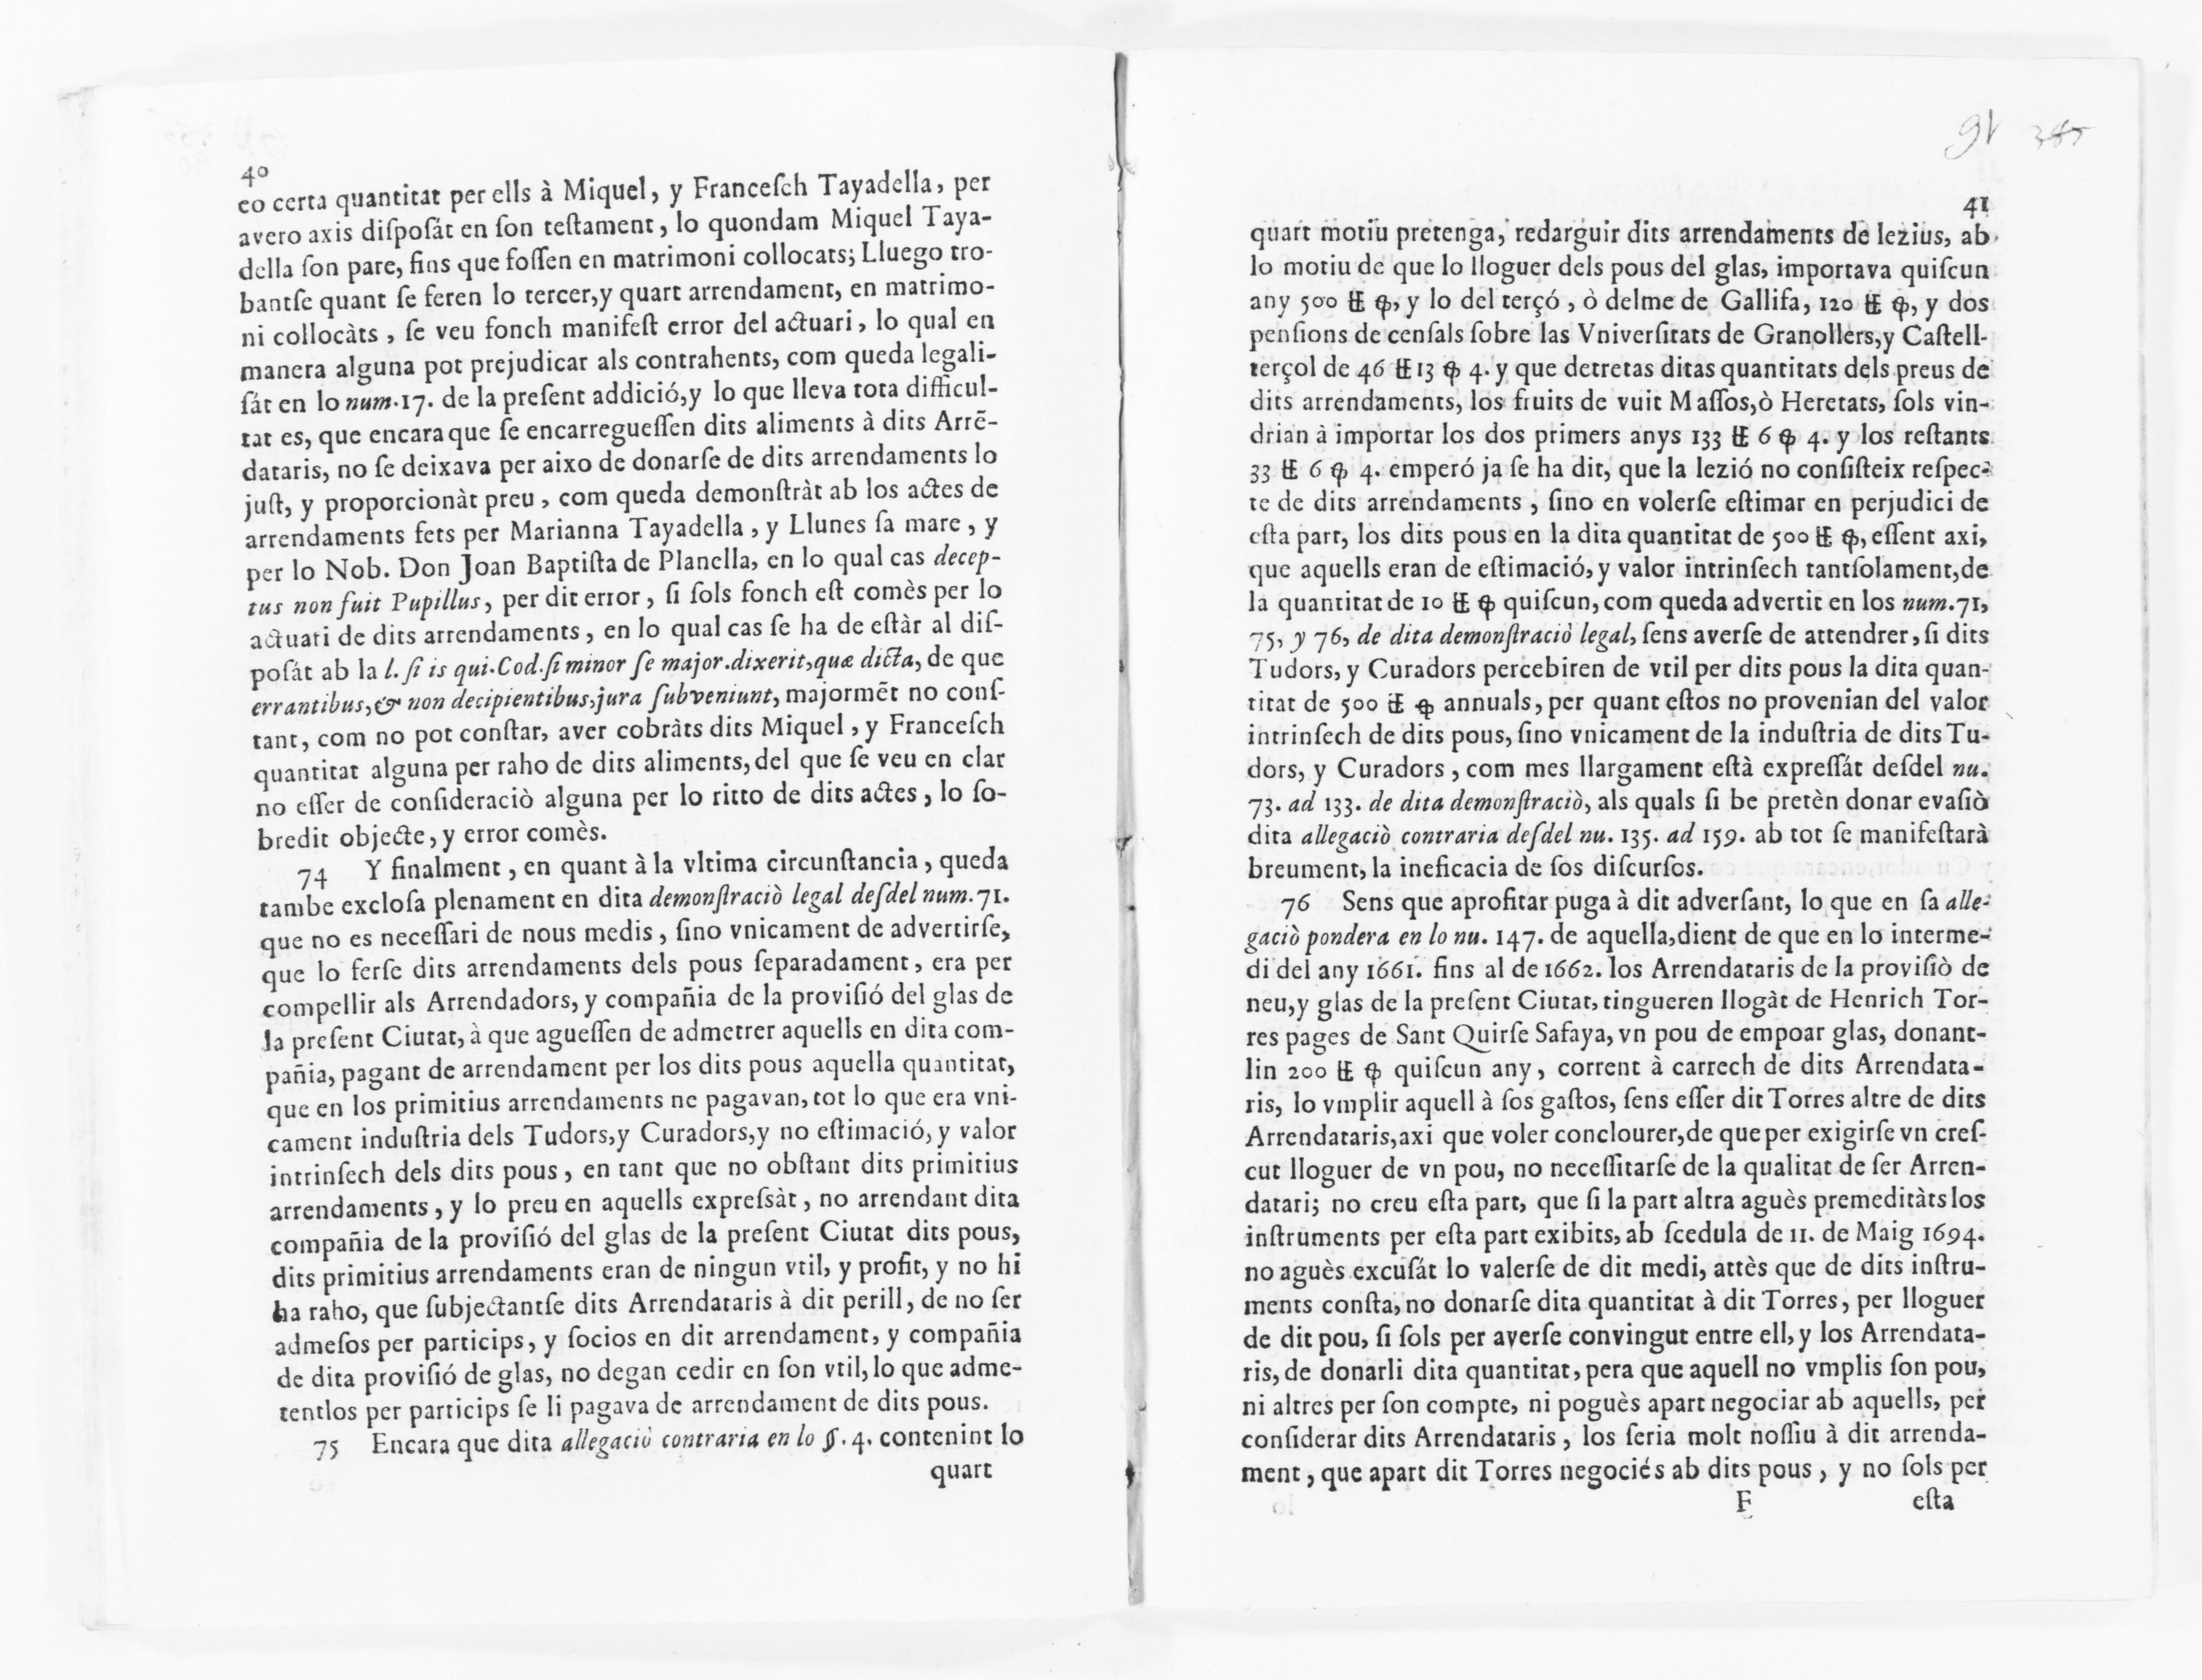 40
co certa quantitat per ells à Miquel, y Franceſch Tayadella, per
avero axis diſpoſát en ſon teſtament, lo quondam Miquel Taya-
della ſon pare, fins que foſſen en matrimoni collocats; Lluego tro-
bantſe quant ſe feren lo tercer,y quart arrendament, en matrimo-
ni collocàts, ſe veu fonch manifeſt error del actuari, lo qual en
manera alguna pot prejudicar als contrahents, com queda legali-
ſát en lo num.17. de la preſent addició,y lo que lleva tota difficul-
tat es, que encara que ſe encarregueſſen dits aliments à dits Arrẽ-
dataris, no ſe deixava per aixo de donarſe de dits arrendaments lo
juſt, y proporcionàt preu, com queda demonſtràt ab los actes de
arrendaments fets per Marianna Tayadella, y Llunes ſa mare, y
per lo Nob. Don Joan Baptiſta de Planella, en lo qual cas decep-
tus non fuit Pupillus, per dit error, ſi ſols fonch eſt comès per lo
actuari de dits arrendaments, en lo qual cas ſe ha de eſtàr al diſ-
poſát ab la l. ſi is qui.Cod.ſi minor ſe major.dixerit,quæ dicta, de que
errantibus,& non decipientibus,jura ſubveniunt, majormẽt no conſ-
tant, com no pot conſtar, aver cobràts dits Miquel, y Franceſch
quantitat alguna per raho de dits aliments, del que ſe veu en clar
no eſſer de conſideraciò alguna per lo ritto de dits actes, lo ſo-
bredit objecte, y error comès.
74 Y finalment, en quant à la vltima circunſtancia, queda
tambe excloſa plenament en dita demonſtraciò legal deſdel num.71.
que no es neceſſari de nous medis, ſino vnicament de advertirſe,
que lo ferſe dits arrendaments dels pous ſeparadament, era per
compellir als Arrendadors, y compañia de la proviſió del glas de
la preſent Ciutat, à que agueſſen de admetrer aquells en dita com-
pañia, pagant de arrendament per los dits pous aquella quantitat,
que en los primitius arrendaments ne pagavan, tot lo que era vni-
cament induſtria dels Tudors,y Curadors,y no eſtimació, y valor
intrinſech dels dits pous, en tant que no obſtant dits primitius
arrendaments, y lo preu en aquells expreſsàt, no arrendant dita
compañia de la proviſió del glas de la preſent Ciutat dits pous,
dits primitius arrendaments eran de ningun vtil, y profit, y no hi
ha raho, que ſubjectantſe dits Arrendataris à dit perill, de no ſer
admeſos per particips, y ſocios en dit arrendament, y compañia
de dita proviſió de glas, no degan cedir en ſon vtil, lo que adme-
tentlos per particips ſe li pagava de arrendament de dits pous.
75 Encara que dita allegaciò contraria en lo §. 4. contenint lo
quart
91 385
41
quart motiu pretenga, redarguir dits arrendaments de lezius, ab
lo motiu de que lo lloguer dels pous del glas, importava quiſcun
any 500 ℔ ꝕ, y lo del terçó, ò delme de Gallifa, 120 ℔ ꝕ, y dos
penſions de cenſals ſobre las Vniverſitats de Granollers,y Caſtell-
terçol de 46 ℔ 13 ꝕ 4. y que detretas ditas quantitats dels preus de
dits arrendaments, los fruits de vuit Maſſos,ò Heretats, ſols vin-
drian à importar los dos primers anys 133 ℔ 6 ꝕ 4. y los reſtants
33 ℔ 6 ꝕ 4. emperó ja ſe ha dit, que la lezió no conſiſteix reſpec-
te de dits arrendaments, ſino en volerſe eſtimar en perjudici de
eſta part, los dits pous en la dita quantitat de 500 ℔ ꝕ, eſſent axi,
que aquells eran de eſtimació, y valor intrinſech tantſolament,de
la quantitat de 10 ℔ ꝕ quiſcun, com queda advertit en los num.71,
75, y 76, de dita demonſtraciò legal, ſens averſe de attendrer, ſi dits
Tudors, y Curadors percebiren de vtil per dits pous la dita quan-
titat de 500 ℔ ꝕ annuals, per quant eſtos no provenian del valor
intrinſech de dits pous, ſino vnicament de la induſtria de dits Tu-
dors, y Curadors, com mes llargament eſtà expreſſát deſdel nu.
73. ad 133. de dita demonſtraciò, als quals ſi be pretèn donar evaſiò
dita allegaciò contraria deſdel nu. 135. ad 159. ab tot ſe manifeſtarà
breument, la ineficacia de ſos diſcurſos.
76 Sens que aprofitar puga à dit adverſant, lo que en ſa alle-
gaciò pondera en lo nu. 147. de aquella,dient de que en lo interme-
di del any 1661. fins al de 1662. los Arrendataris de la proviſiò de
neu,y glas de la preſent Ciutat, tingueren llogàt de Henrich Tor-
res pages de Sant Quirſe Safaya, vn pou de empoar glas, donant-
lin 200 ℔ ꝕ quiſcun any, corrent à carrech de dits Arrendata-
ris, lo vmplir aquell à ſos gaſtos, ſens eſſer dit Torres altre de dits
Arrendataris,axi que voler conclourer,de que per exigirſe vn creſ-
cut lloguer de vn pou, no neceſſitarſe de la qualitat de ſer Arren-
datari; no creu eſta part, que ſi la part altra aguès premeditàts los
inſtruments per eſta part exibits, ab ſcedula de 11. de Maig 1694.
no aguès excuſát lo valerſe de dit medi, attès que de dits inſtru-
ments conſta, no donarſe dita quantitat à dit Torres, per lloguer
de dit pou, ſi ſols per averſe convingut entre ell, y los Arrendata-
ris, de donarli dita quantitat, pera que aquell no vmplis ſon pou,
ni altres per ſon compte, ni poguès apart negociar ab aquells, per
conſiderar dits Arrendataris, los ſeria molt noſſiu à dit arrenda-
ment, que apart dit Torres negociés ab dits pous, y no ſols per
F eſta